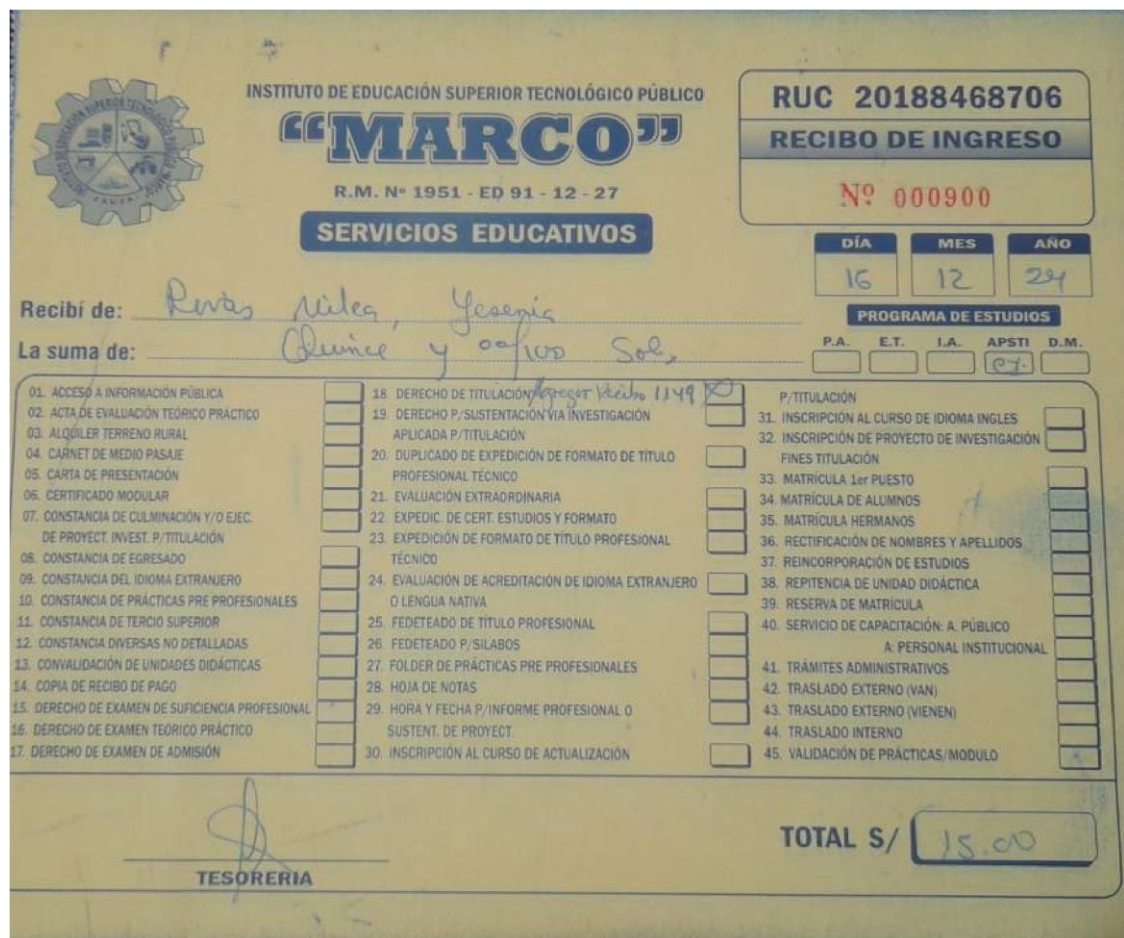 INSTITUTO DE EDUCACIÓN SUPERIOR TECNOLÓGICO PÚBLICO
“MARCO”
R.M. Nº 1951 - ED 91 - 12 - 27
SERVICIOS EDUCATIVOS
RUC 20188468706
RECIBO DE INGRESO
Nº 000900
DÍA MES AÑO
16 12 24
Recibí de: Rivas Yesenia
La suma de: Quince y 00/100 Soles
PROGRAMA DE ESTUDIOS
P.A. E.T. I.A. APSTI D.M.
01. ACCESO A INFORMACIÓN PÚBLICA
02. ACTA DE EVALUACIÓN TEÓRICO PRÁCTICO
03. ALQUILER TERRENO RURAL
04. CARNET DE MEDIO PASAJE
05. CARTA DE PRESENTACIÓN
06. CERTIFICADO MODULAR
07. CONSTANCIA DE CULMINACIÓN Y/O EJEC.
DE PROYECT. INVEST. P/TITULACIÓN
08. CONSTANCIA DE EGRESADO
09. CONSTANCIA DEL IDIOMA EXTRANJERO
10. CONSTANCIA DE PRÁCTICAS PRE PROFESIONALES
11. CONSTANCIA DE TERCIO SUPERIOR
12. CONSTANCIA DIVERSAS NO DETALLADAS
13. CONVALIDACIÓN DE UNIDADES DIDÁCTICAS
14. COPIA DE RECIBO DE PAGO
15. DERECHO DE EXAMEN DE SUFICIENCIA PROFESIONAL
16. DERECHO DE EXAMEN TEÓRICO PRÁCTICO
17. DERECHO DE EXAMEN DE ADMISIÓN
18. DERECHO DE TITULACIÓN Agregar Recibo 1149
19. DERECHO P/SUSTENTACIÓN VIA INVESTIGACIÓN
APLICADA P/TITULACIÓN
20. DUPLICADO DE EXPEDICIÓN DE FORMATO DE TÍTULO
PROFESIONAL TÉCNICO
21. EVALUACIÓN EXTRAORDINARIA
22. EXPEDIC. DE CERT. ESTUDIOS Y FORMATO
23. EXPEDICIÓN DE FORMATO DE TÍTULO PROFESIONAL
TÉCNICO
24. EVALUACIÓN DE ACREDITACIÓN DE IDIOMA EXTRANJERO
O LENGUA NATIVA
25. FEDETEADO DE TÍTULO PROFESIONAL
26. FEDETEADO P/SILABOS
27. FOLDER DE PRÁCTICAS PRE PROFESIONALES
28. HOJA DE NOTAS
29. HORA Y FECHA P/INFORME PROFESIONAL O
SUSTENT. DE PROYECT.
30. INSCRIPCIÓN AL CURSO DE ACTUALIZACIÓN
P/TITULACIÓN
31. INSCRIPCIÓN AL CURSO DE IDIOMA INGLES
32. INSCRIPCIÓN DE PROYECTO DE INVESTIGACIÓN
FINES TITULACIÓN
33. MATRÍCULA 1er PUESTO
34. MATRÍCULA DE ALUMNOS
35. MATRÍCULA HERMANOS
36. RECTIFICACIÓN DE NOMBRES Y APELLIDOS
37. REINCORPORACIÓN DE ESTUDIOS
38. REPITENCIA DE UNIDAD DIDÁCTICA
39. RESERVA DE MATRÍCULA
40. SERVICIO DE CAPACITACIÓN: A. PÚBLICO
A: PERSONAL INSTITUCIONAL
41. TRÁMITES ADMINISTRATIVOS
42. TRASLADO EXTERNO (VAN)
43. TRASLADO EXTERNO (VIENEN)
44. TRASLADO INTERNO
45. VALIDACIÓN DE PRÁCTICAS/MODULO
TESORERIA
TOTAL S/ 15.00